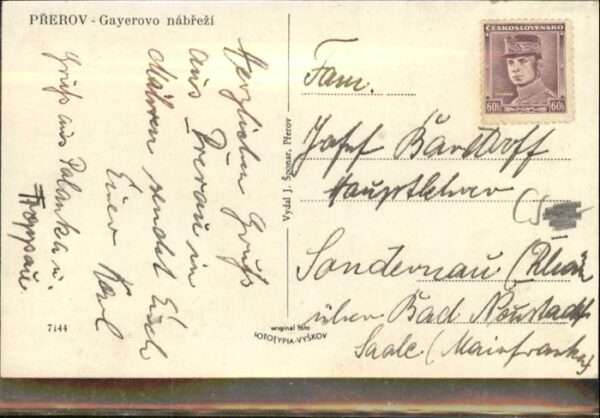 PŘEROV - Gayerovo nábřeží
Herzlichen Gruß
aus Prerau in
Mähren sendet Euch
Euer Karl
Gruß aus Palanka u.
Troppau.
Vydal J. Šponar, Přerov
7144
original foto
FOTOTYPIA-VYŠKOV
ČESKOSLOVENSKO
60h 60h
Fam.
Josef Bardroff
Hauptlehrer
Sondernau (Rhön
über Bad Neustadt
Saale (Mainfranken)